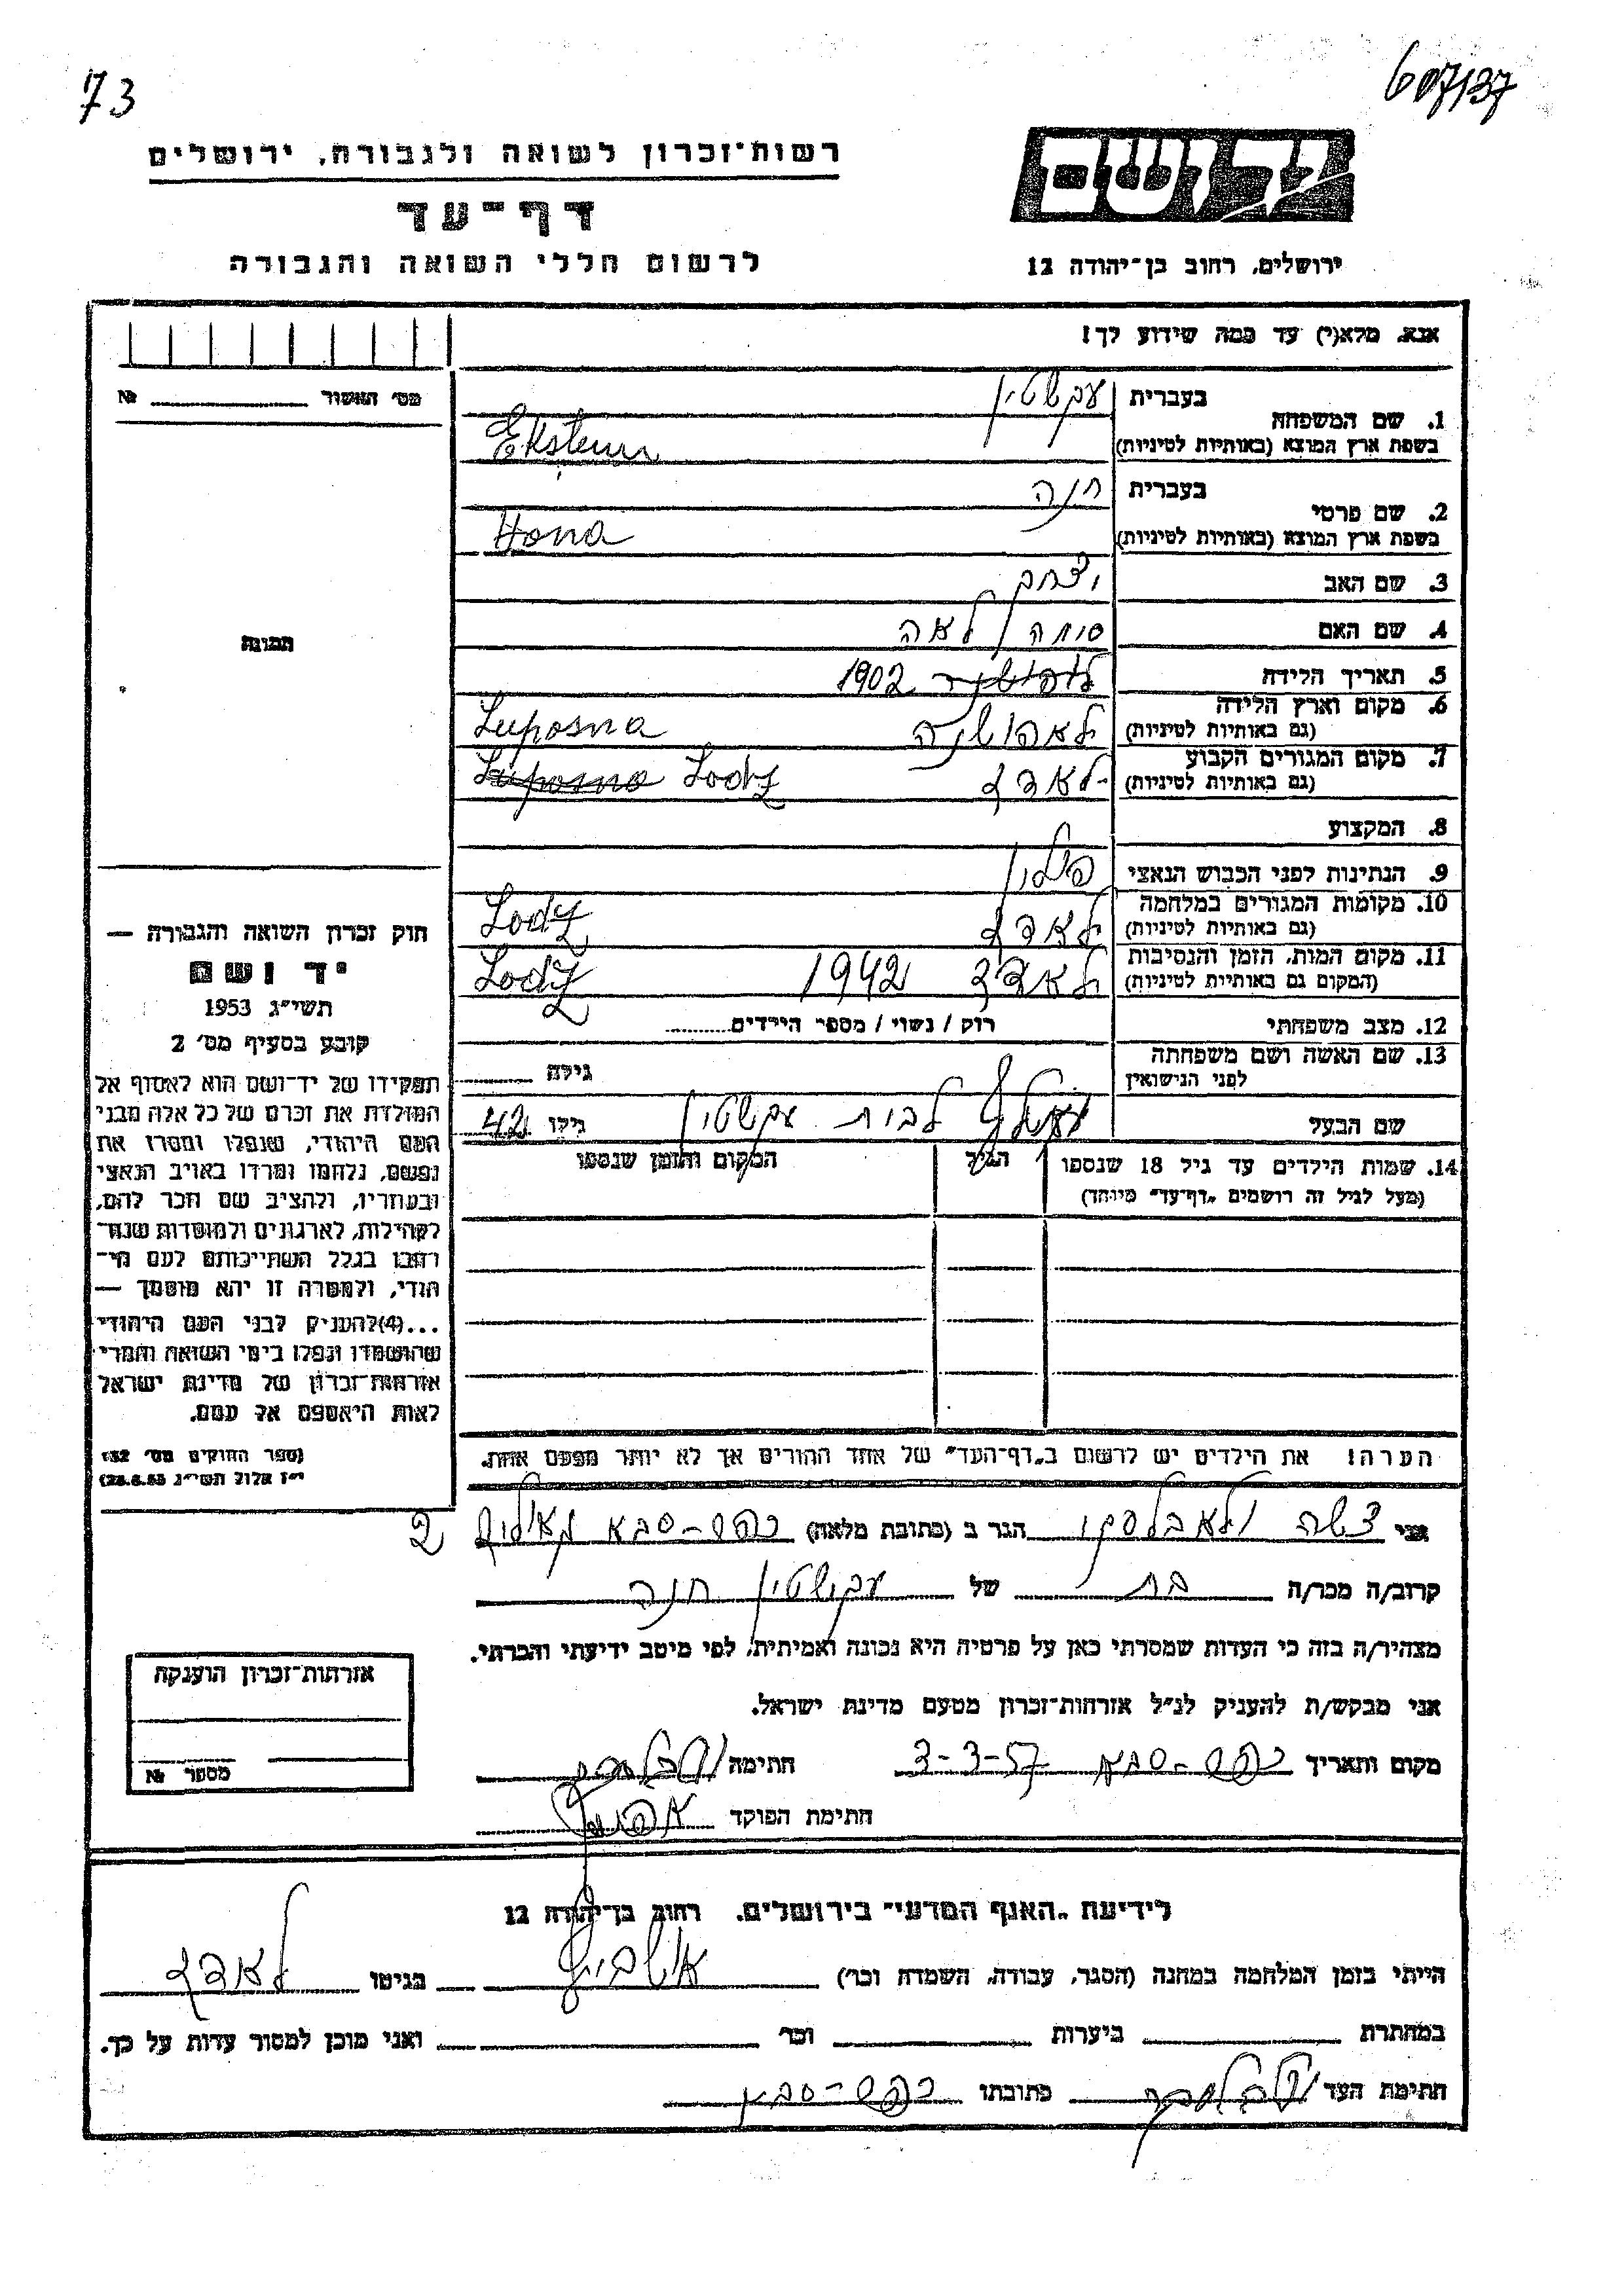 73
607/137
רשות־זכרון לשואה ולגבורה, ירושלים
יד ושם
דף־עד
לרשום חללי השואה והגבורה
ירושלים, רחוב בן־יהודה 12
אנא, מלא(י) עד כמה שידוע לך!
מס׳ האשור № 
1. שם המשפחה בעברית עקשטין
בשפת ארץ המוצא (באותיות לטיניות) Ekstein
2. שם פרטי בעברית חנה
בשפת ארץ המוצא (באותיות לטיניות) Hana
3. שם האב יצחק
4. שם האם לאה
5. תאריך הלידה 1902
6. מקום וארץ הלידה
(גם באותיות לטיניות) Luposna
7. מקום המגורים הקבוע
(גם באותיות לטיניות) לאדז Luposna Lodz
8. המקצוע
9. הנתינות לפני הכבוש הנאצי פולין
10. מקומות המגורים במלחמה
(גם באותיות לטיניות) לאדז Lodz
11. מקום המות, הזמן והנסיבות
(המקום גם באותיות לטיניות) לאדז 1942 Lodz
12. מצב משפחתי רוק / נשוי / מספר הילדים
13. שם האשה ושם משפחתה
לפני הנישואין גילה
שם הבעל לבית עקשטין גילו 42
14. שמות הילדים עד גיל 18 שנספו הגיל המקום והזמן שנספו
(מעל לגיל זה רושמים „דף־עד״ מיוחד)
הערה! את הילדים יש לרשום ב„דף־העד״ של אחד ההורים אך לא יותר מפעם אחת.
תמונה
חוק זכרון השואה והגבורה —
יד ושם
תשי״ג 1953
קובע בסעיף מס׳ 2
תפקידו של יד־ושם הוא לאסוף אל
המולדת את זכרם של כל אלה מבני
העם היהודי, שנפלו ומסרו את
נפשם, נלחמו ומרדו באויב הנאצי
ובעוזריו, ולהציב שם וזכר להם,
לקהילות, לארגונים ולמוסדות שנח־
רבו בגלל השתייכותם לעם הי־
הודי, ולמטרה זו יהא מוסמך —
...(4)להעניק לבני העם היהודי
שהושמדו ונפלו בימי השואה והמרי
אזרחות־זכרון של מדינת ישראל
לאות היאספם אל עמם.
(ספר החוקים מס׳ 132
י״ז אלול תשי״ג 28.8.53)
אני הגר ב (כתובת מלאה) כפר-סבא 2
קרוב/ה מכר/ה בת של עקשטין חנה
מצהיר/ה בזה כי העדות שמסרתי כאן על פרטיה היא נכונה ואמיתית, לפי מיטב ידיעתי והכרתי.
אני מבקש/ת להעניק לנ״ל אזרחות־זכרון מטעם מדינת ישראל.
מקום ותאריך כפר-סבא 3-3-57 חתימה
חתימת הפוקד
אזרחות־זכרון הוענקה
מספר №
לידיעת „האגף המדעי״ בירושלים, רחוב בן־יהודה 12
הייתי בזמן המלחמה במחנה (הסגר, עבודה, השמדה וכר׳) אושביץ בגיטו לאדז
במחתרת ביערות וכר׳ ואני מוכן למסור עדות על כך.
חתימת העד כתובתו כפר-סבא